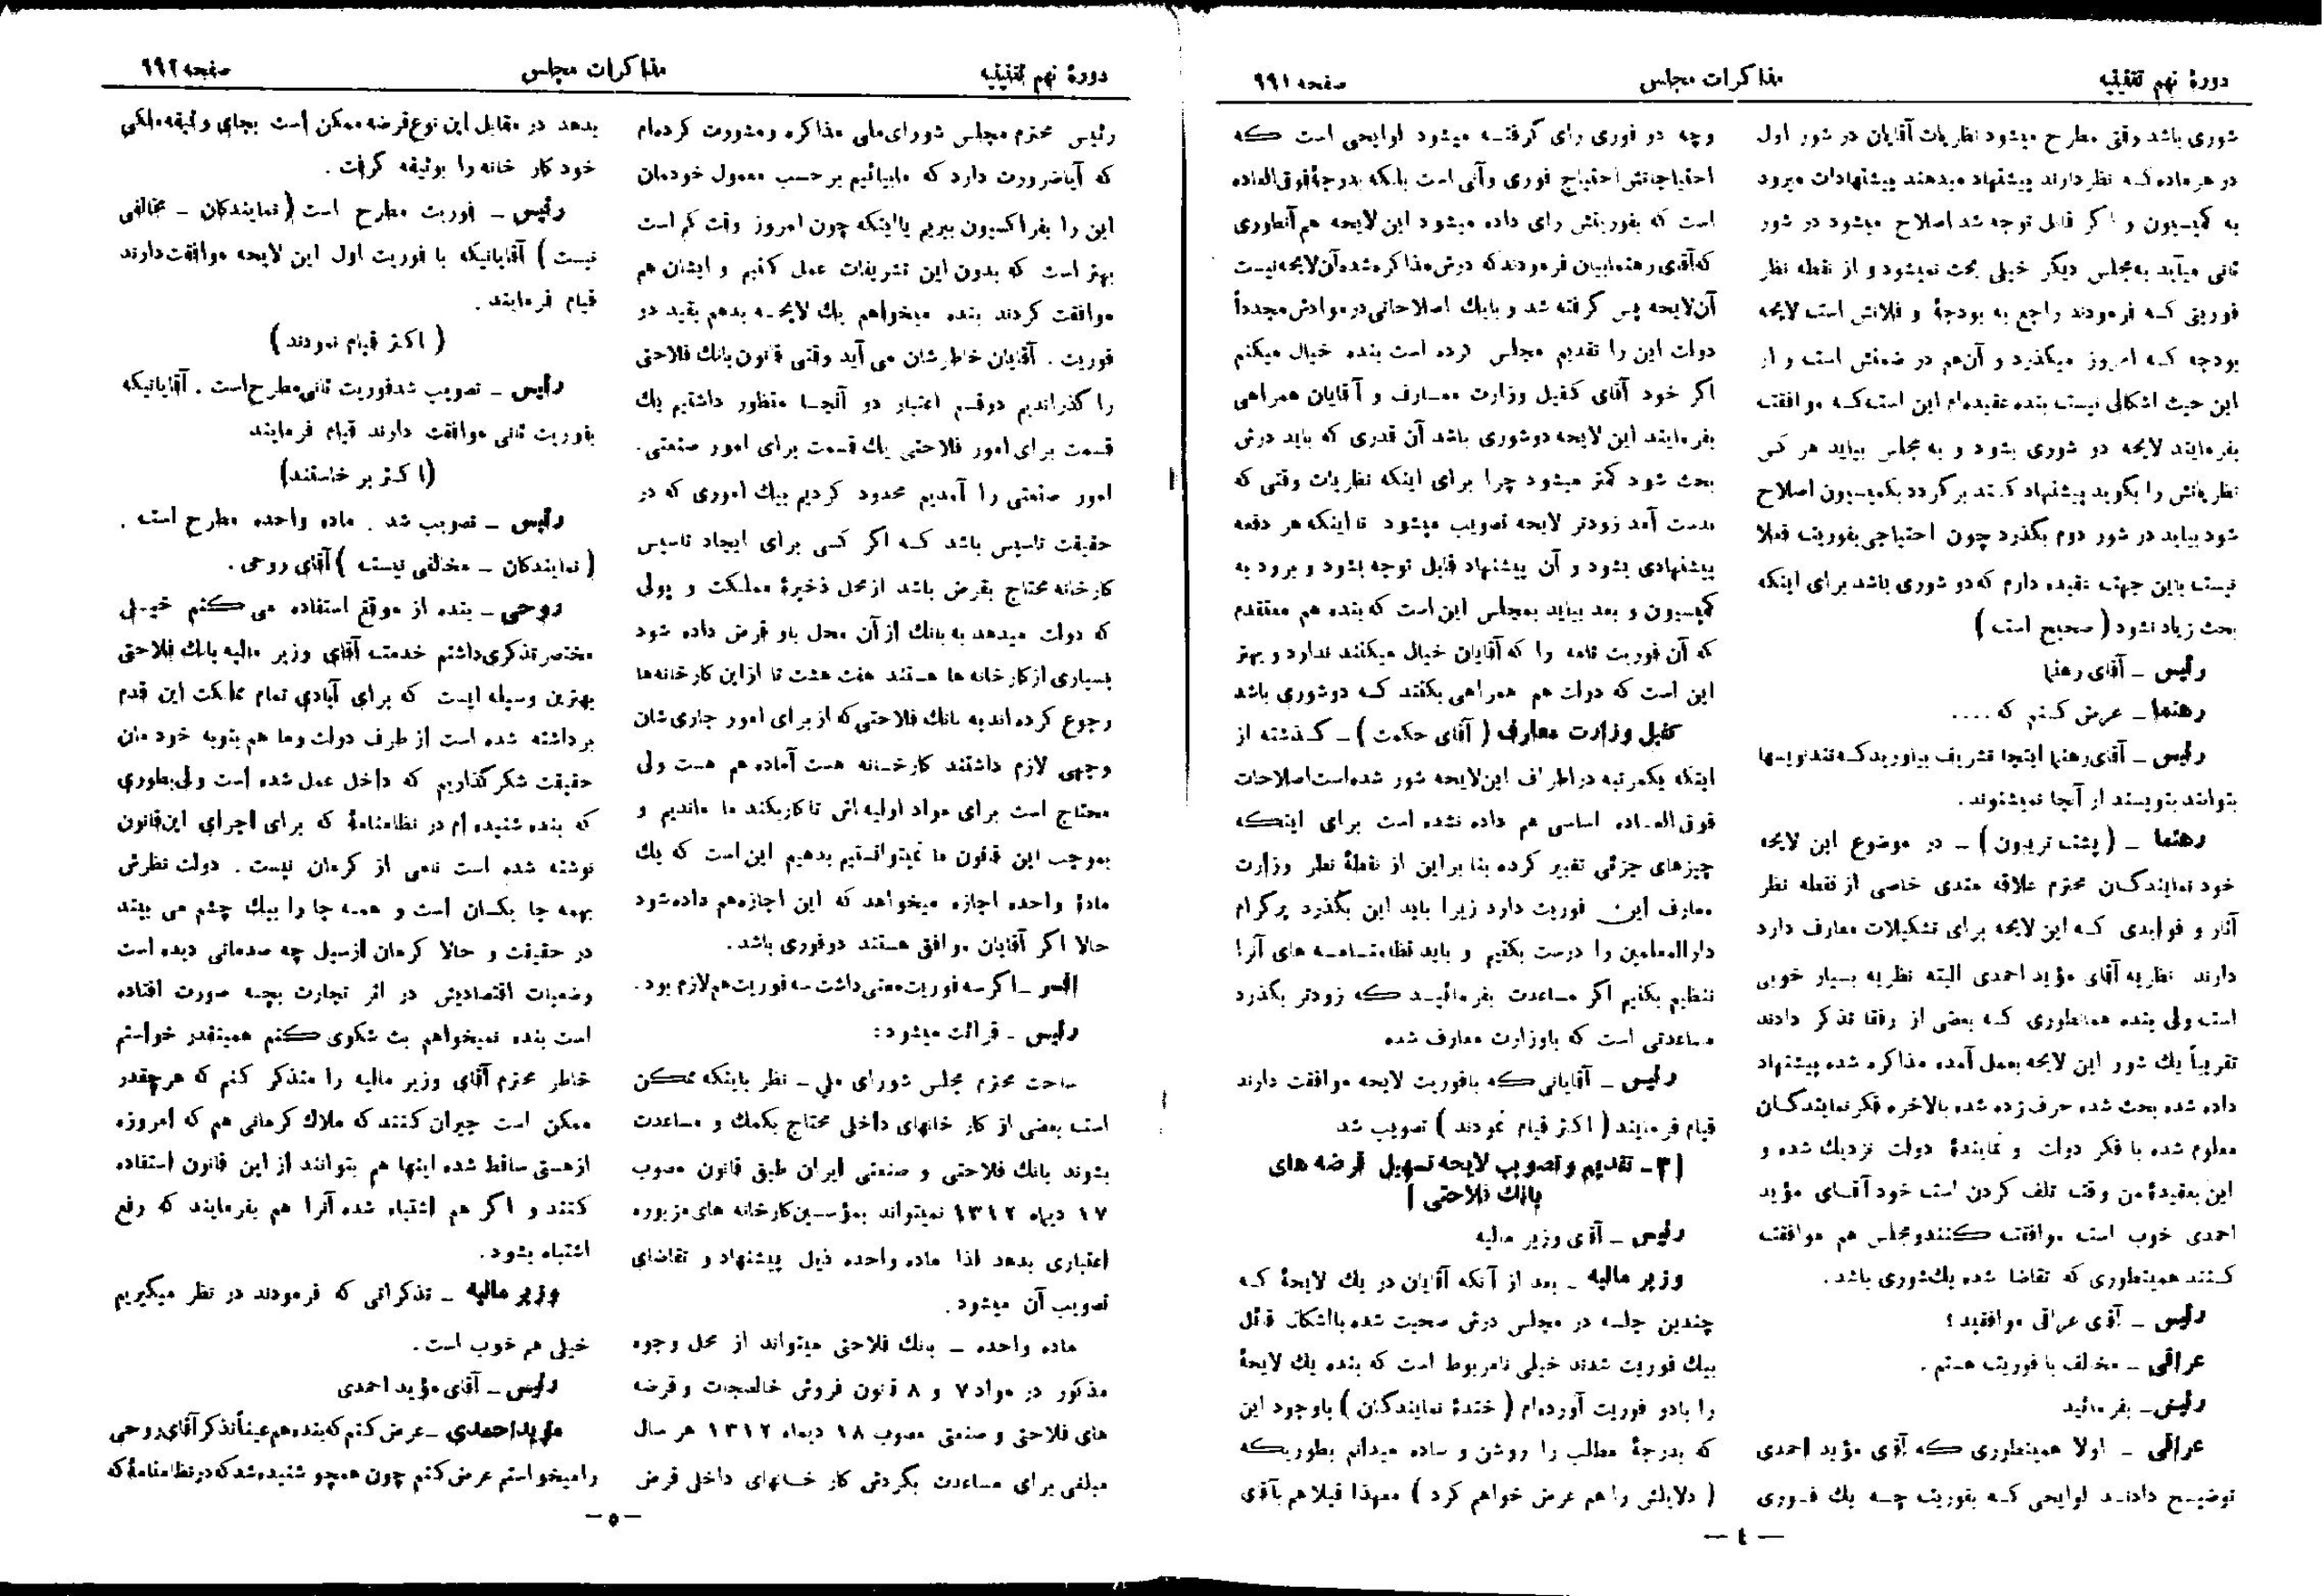 دورهٔ نهم تقنینیه
مذاکرات مجلس
صفحه ۹۹۱
شوری باشد وقتی مطرح میشود نظریات آقایان در شور اول
در هر ماده که نظر دارند پیشنهاد میدهند پیشنهادات میرود
به کمیسیون و اگر قابل توجه شد اصلاح میشود در شور
ثانی میآید به مجلس دیگر خیلی بحث نمیشود و از نقطه نظر
فوریتی که فرمودند راجع به بودجهٔ و فلانش است لایحه
بودجه که امروز میگذرد و آن هم در ضمنش است و از
این حیث اشکالی نیست بنده عقیده‌ام این است که موافقت
بفرمایند لایحه دو شوری بشود و به مجلس بیاید هر کس
نظریاتش را بگوید پیشنهاد کنند برگردد بکمیسیون اصلاح
شود بیاید در شور دوم بگذرد چون احتیاجی بفوریت فعلا
نیست باین جهت عقیده دارم که دو شوری باشد برای اینکه
بحث زیاد نشود ( صحیح است )
رئیس – آقای رهنما
رهنما – عرض کنم که ....
رئیس – آقای رهنما اینجا تشریف بیاورید که تندنویسها
بتوانند بنویسند از آنجا نمیشنوند .
رهنما – ( پشت تریبون ) – در موضوع این لایحه
خود نمایندگان محترم علاقه مندی خاصی از نقطه نظر
آثار و فوایدی که این لایحه برای تشکیلات معارف دارد
دارند نظریه آقای مؤید احمدی البته نظریه بسیار خوبی
است ولی بنده همانطوری که بعضی از رفقا تذکر دادند
تقریباً یك شور این لایحه بعمل آمده مذاکره شده پیشنهاد
داده شده بحث شده حرف زده شده بالاخره فکر نمایندگان
معلوم شده با فکر دولت و نمایندهٔ دولت نزدیك شده و
این بعقیدهٔ من وقت تلف کردن است خود آقای مؤید
احمدی خوب است موافقت کنند و مجلس هم موافقت
کنند همینطوری که تقاضا شده یك شوری باشد .
رئیس – آقای عراقی موافقید ؟
عراقی – مخالف با فوریت هستم .
رئیس – بفرمائید
عراقی – اولا همینطوری که آقای مؤید احمدی
توضیح دادند لوایحی که بفوریت چه یك فوری
وچه دو فوری رای گرفته میشود لوایحی است که
احتیاجاتش احتیاج فوری وآنی است بلکه بدرجهٔ فوق‌العاده
است که بفوریتش رای داده میشود این لایحه هم آنطوری
که آقای رهنما بیان فرمودند که درش مذاکره شده آن لایحه نیست
آن لایحه پس گرفته شد و با یك اصلاحاتی در موادش مجدداً
دولت این را تقدیم مجلس کرده است بنده خیال میکنم
اگر خود آقای کفیل وزارت معارف و آقایان همراهی
بفرمایند این لایحه دو شوری باشد آن قدری که باید درش
بحث شود کمتر میشود چرا برای اینکه نظریات وقتی که
بدست آمد زودتر لایحه تصویب میشود تا اینکه هر دفعه
پیشنهادی بشود و آن پیشنهاد قابل توجه بشود و برود به
کمیسیون و بعد بیاید بمجلس این است که بنده هم معتقدم
که آن فوریت تامه را که آقایان خیال میکنند ندارد و بهتر
این است که دولت هم همراهی بکنند که دو شوری باشد
کفیل وزارت معارف ( آقای حکمت ) – گذشته از
اینکه یکمرتبه در اطراف این لایحه شور شده است اصلاحات
فوق‌العاده اساسی هم داده نشده است برای اینکه
چیزهای جزئی تغییر کرده بنا براین از نقطهٔ نظر وزارت
معارف این فوریت دارد زیرا باید این بگذرد پرگرام
دارالمعلمین را درست بکنیم و باید نظامنامه های آنرا
تنظیم بکنیم اگر مساعدت بفرمائید که زودتر بگذرد
مساعدتی است که باوزارت معارف شده
رئیس – آقایانی که بافوریت لایحه موافقت دارند
قیام فرمایند ( اکثر قیام نمودند ) تصویب شد
[ ۳ – تقدیم و تصویب لایحه تسهیل قرضه های
بانك فلاحتی ]
رئیس – آقای وزیر مالیه
وزیر مالیه – بعد از آنکه آقایان در یك لایحهٔ که
چندین جلسه در مجلس درش صحبت شده بااشکال قائل
بیك فوریت شدند خیلی نامربوط است که بنده یك لایحهٔ
را بادو فوریت آورده‌ام ( خندهٔ نمایندگان ) باوجود این
که بدرجهٔ مطلب را روشن و ساده میدانم بطوریکه
( دلایلش را هم عرض خواهم کرد ) معهذا قبلا هم بآقای
– ٤ –
دورهٔ نهم تقنینیه
مذاکرات مجلس
صفحه ۹۹۲
رئیس محترم مجلس شورای‌ملی مذاکره ومشورت کرده‌ام
که آیا ضرورت دارد که ما بیائیم برحسب معمول خودمان
این را بفراکسیون ببریم یا اینکه چون امروز وقت کم است
بهتر است که بدون این تشریفات عمل کنیم و ایشان هم
موافقت کردند بنده میخواهم یك لایحه بدهم بقید دو
فوریت . آقایان خاطرشان می آید وقتی قانون بانك فلاحتی
را گذراندیم دوقسم اعتبار دو آنجا منظور داشتیم یك
قسمت برای امور فلاحتی یك قسمت برای امور صنعتی.
امور صنعتی را آمدیم محدود کردیم بیك اموری که در
حقیقت تاسیس باشد که اگر کسی برای ایجاد تاسیس
کارخانه محتاج بقرض باشد از محل ذخیرهٔ مملکت و پولی
که دولت میدهد به بانك از آن محل باو قرض داده شود
بسیاری از کارخانه ها هستند هفت هشت تا از این کارخانه‌ها
رجوع کرده‌اند به بانك فلاحتی که از برای امور جاری شان
وجهی لازم داشتند کارخانه هست آماده هم هست ولی
محتاج است برای مواد اولیه اش تا کار بکند ما ماندیم و
بموجب این قانون ما نمیتوانستیم بدهیم این است که یك
مادهٔ واحده اجازه میخواهد که این اجازه‌هم داده‌شود
حالا اگر آقایان موافق هستند دوفوری باشد .
افسر – اگر سه فوریت معنی داشت سه فوریت هم لازم بود .
رئیس – قرائت میشود :
ساحت محترم مجلس شورای ملی – نظر باینکه ممکن
است بعضی از کار خانهای داخلی محتاج بکمك و مساعدت
بشوند بانك فلاحتی و صنعتی ایران طبق قانون مصوب
۱۷ دیماه ۱۳۱۲ نمیتواند بمؤسسین کارخانه های مزبوره
اعتباری بدهد لذا ماده واحده ذیل پیشنهاد و تقاضای
تصویب آن میشود .
ماده واحده – بانك فلاحتی میتواند از محل وجوه
مذکور در مواد ۷ و ۸ قانون فروش خالصجات و قرضه
های فلاحتی و صنعتی مصوب ۱۸ دیماه ۱۳۱۲ هر سال
مبلغی برای مساعدت بگردش کار خانهای داخلی قرض
بدهد در مقابل این نوع قرضه ممکن است بجای وثیقه ملکی
خود کار خانه را بوثیقه گرفت .
رئیس – فوریت مطرح است ( نمایندگان – مخالفی
نیست ) آقایانیکه با فوریت اول این لایحه موافقت دارند
قیام فرمایند .
( اکثر قیام نمودند )
رئیس – تصویب شد فوریت ثانی مطرح است . آقایانیکه
بفوریت ثانی موافقت دارند قیام فرمایند
(اکثر بر خاستند)
رئیس – تصویب شد . ماده واحده مطرح است .
( نمایندگان – مخالفی نیست ) آقای روحی .
روحی – بنده از موقع استفاده می کنم خیلی
مختصر تذکری داشتم خدمت آقای وزیر مالیه بانك فلاحتی
بهترین وسیله ایست که برای آبادی تمام مملکت این قدم
برداشته شده است از طرف دولت وما هم بنوبه خودمان
حقیقت شکر گذاریم که داخل عمل شده است ولی بطوری
که بنده شنیده‌ام در نظامنامهٔ که برای اجرای این‌قانون
نوشته شده است نامی از کرمان نیست . دولت نظرش
بهمه جا یکسان است و همه جا را بیك چشم می بیند
در حقیقت و حالا کرمان از سیل چه صدماتی دیده است
وضعیات اقتصادیش در اثر تجارت بچه صورت افتاده
است بنده نمیخواهم بث شکوی کنم همینقدر خواستم
خاطر محترم آقای وزیر مالیه را متذکر کنم که هرچقدر
ممکن است جبران کنند که ملاك کرمانی هم که امروزه
از هستی ساقط شده اینها هم بتوانند از این قانون استفاده
کنند و اگر هم اشتباه شده آنرا هم بفرمایند که رفع
اشتباه بشود .
وزیر مالیه – تذکراتی که فرمودند در نظر میگیریم
خیلی هم خوب است .
رئیس – آقای مؤید احمدی
مؤید احمدی – عرض کنم که بنده هم عیناً تذکر آقای روحی
را میخواستم عرض کنم چون همچو شنیده شد که در نظامنامهٔ که
– ٥ –